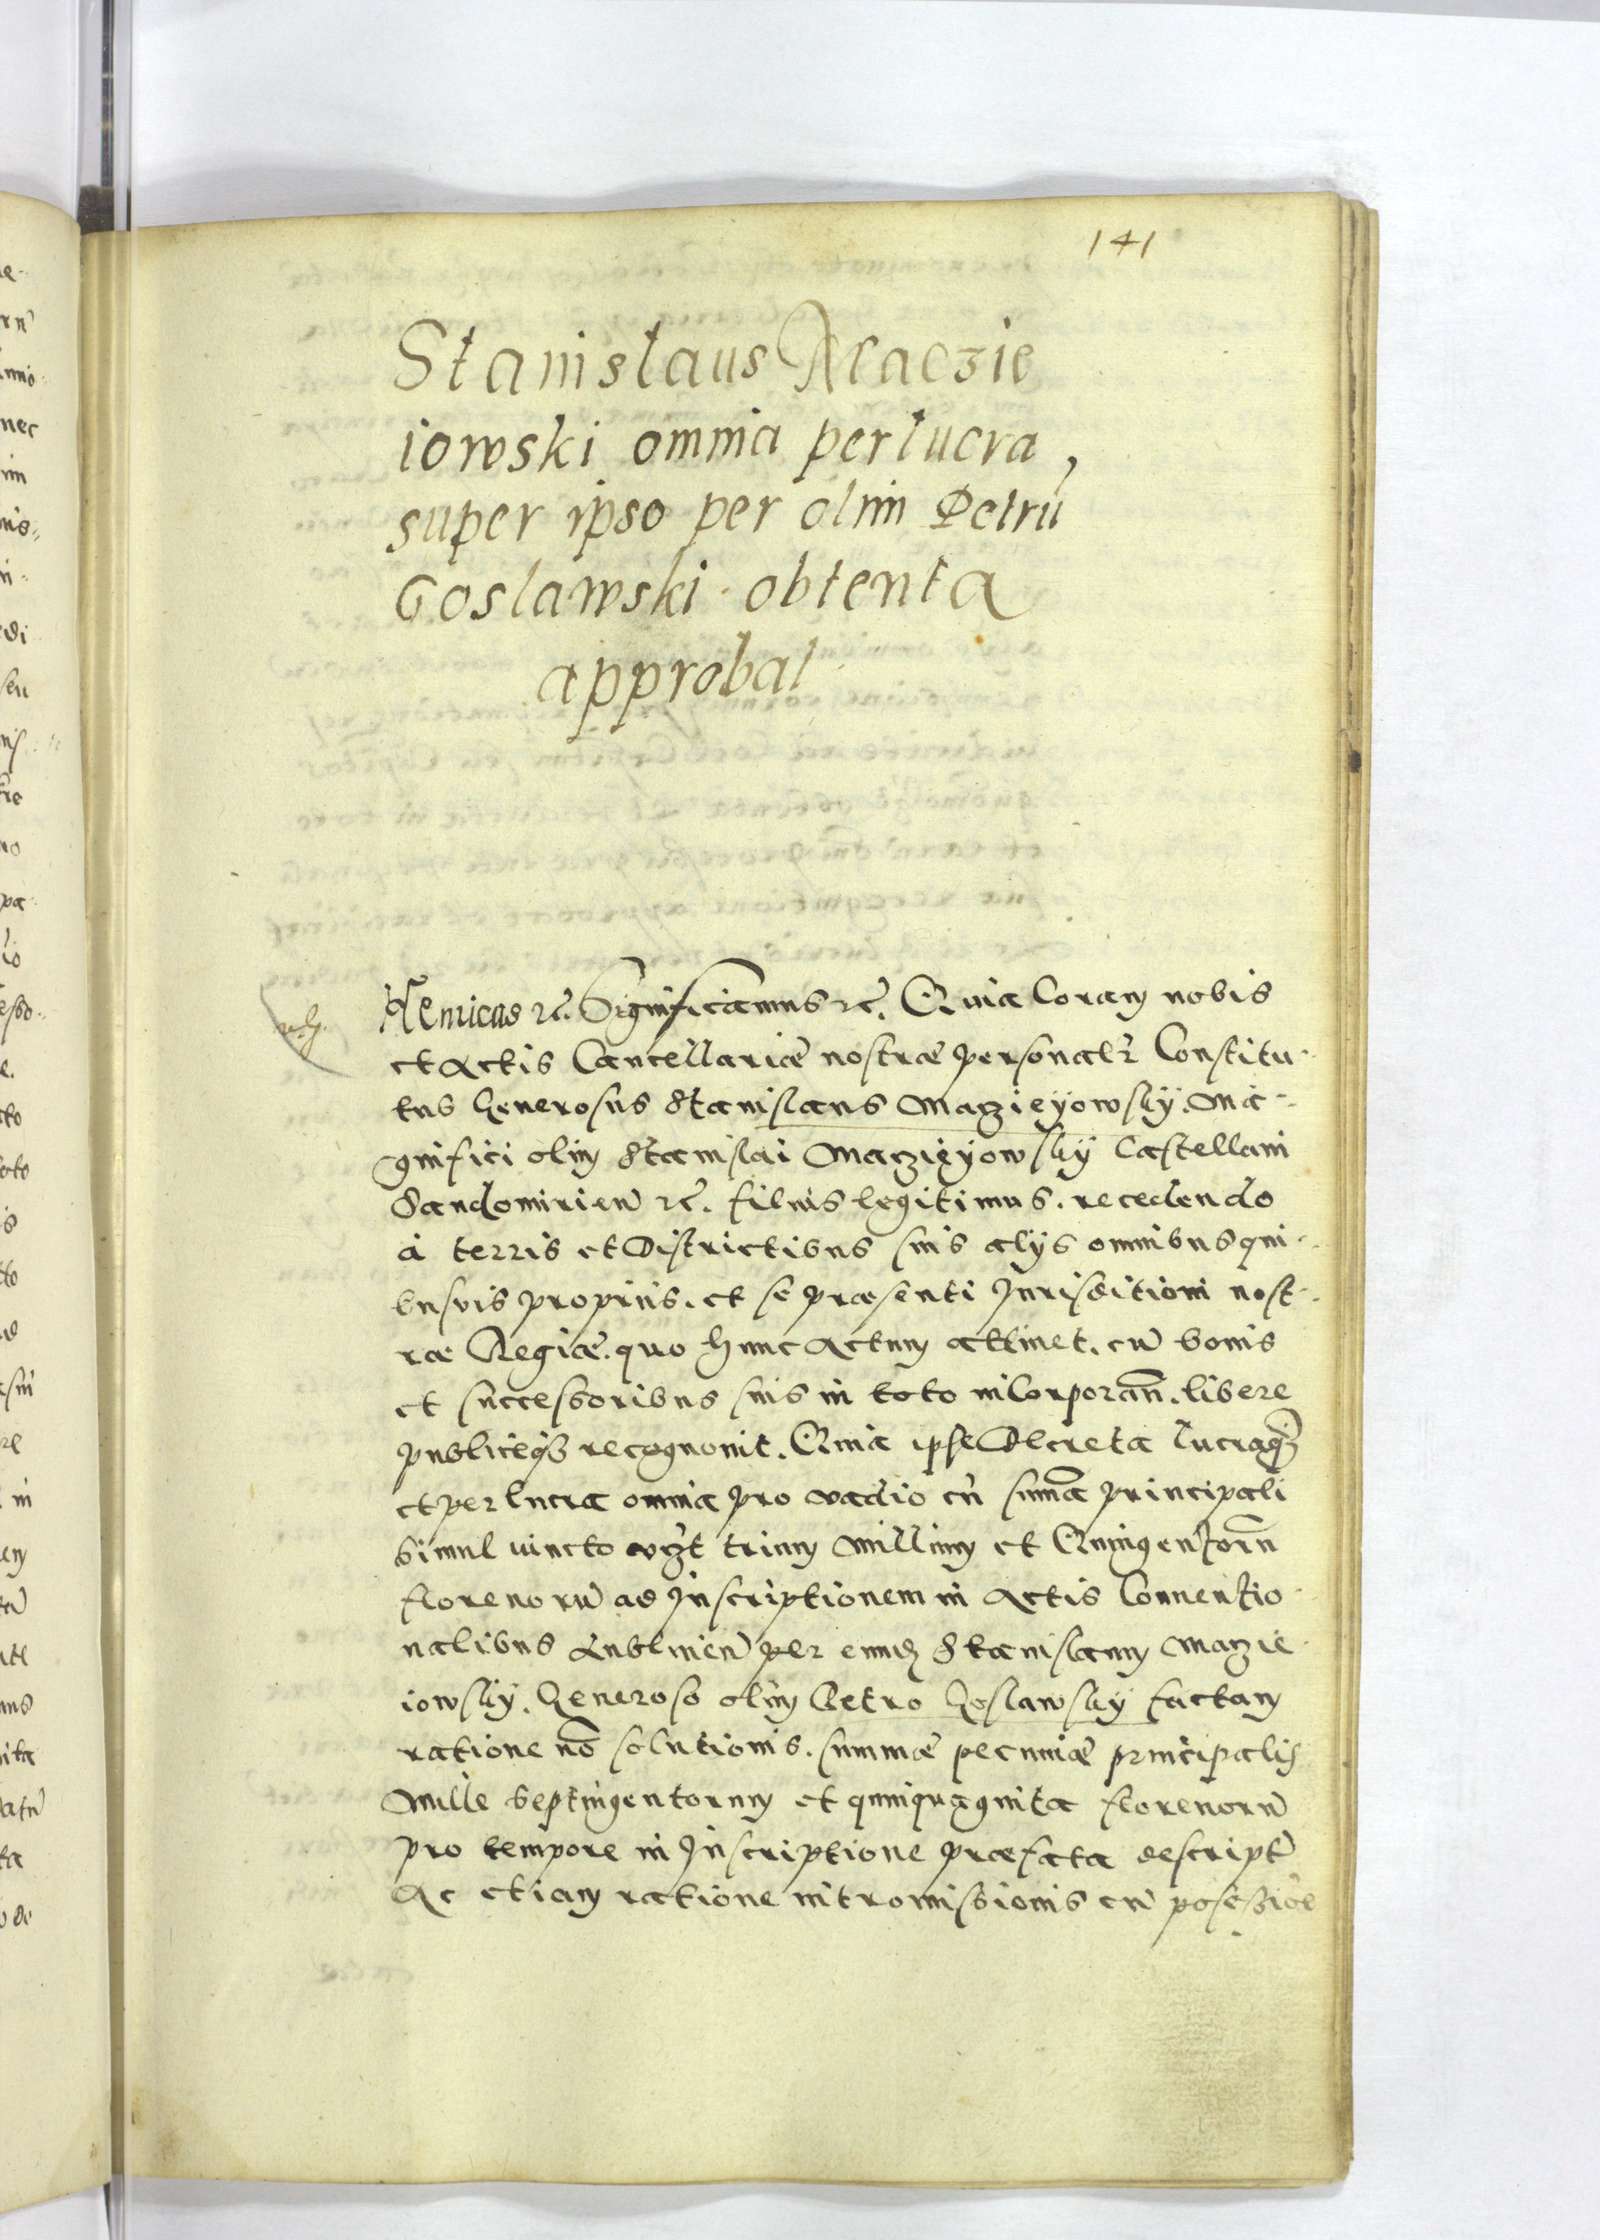 141
Stanislaus Maczie
iowski omnia perlucra,
super ipso per olim Petrū
Goslawski obtenta
approbat
Henricus ꝛc. Significamus ꝛc. Quia Coram nobis
et Actis Cancellariæ nostræ personalr̃ Constitu-
tus Generosus Stanislaus Maczieÿowskÿ. Ma-
gnifici olim Stanislai Maczieÿowskÿ Castellani
Sandomirien̄ ꝛc. filius legitimus. recedendo
à terris et Districtibus suis alÿs omnibus qui-
busvis proprijs. et se præsenti Jurisditioni nost-
ræ Regiæ. quo hunc Actum attinet. cū bonis
et successoribus suis in toto inCorporan̄. libere
publiceq₃ recognovit. Quia ipse Decreta lucraq₃
et perlucra omnia pro vadio cū summa principali
simul iuncto vꝫt trium Millium et Quingentorū
florenorū ad Inscriptionem in Actis Conventio-
nalibus Lublinen̄ per eund̄ Stanislaum Maczie-
iowskÿ. Generoso olim Petro Goslawskÿ factam
ratione nō solutionis. summæ pecuniæ principalis
Mille septingentorum et quinquaginta florenorū
pro tempore in Inscriptione præfata descript̄
Ac etiam ratione intromissionis cū possessiōe